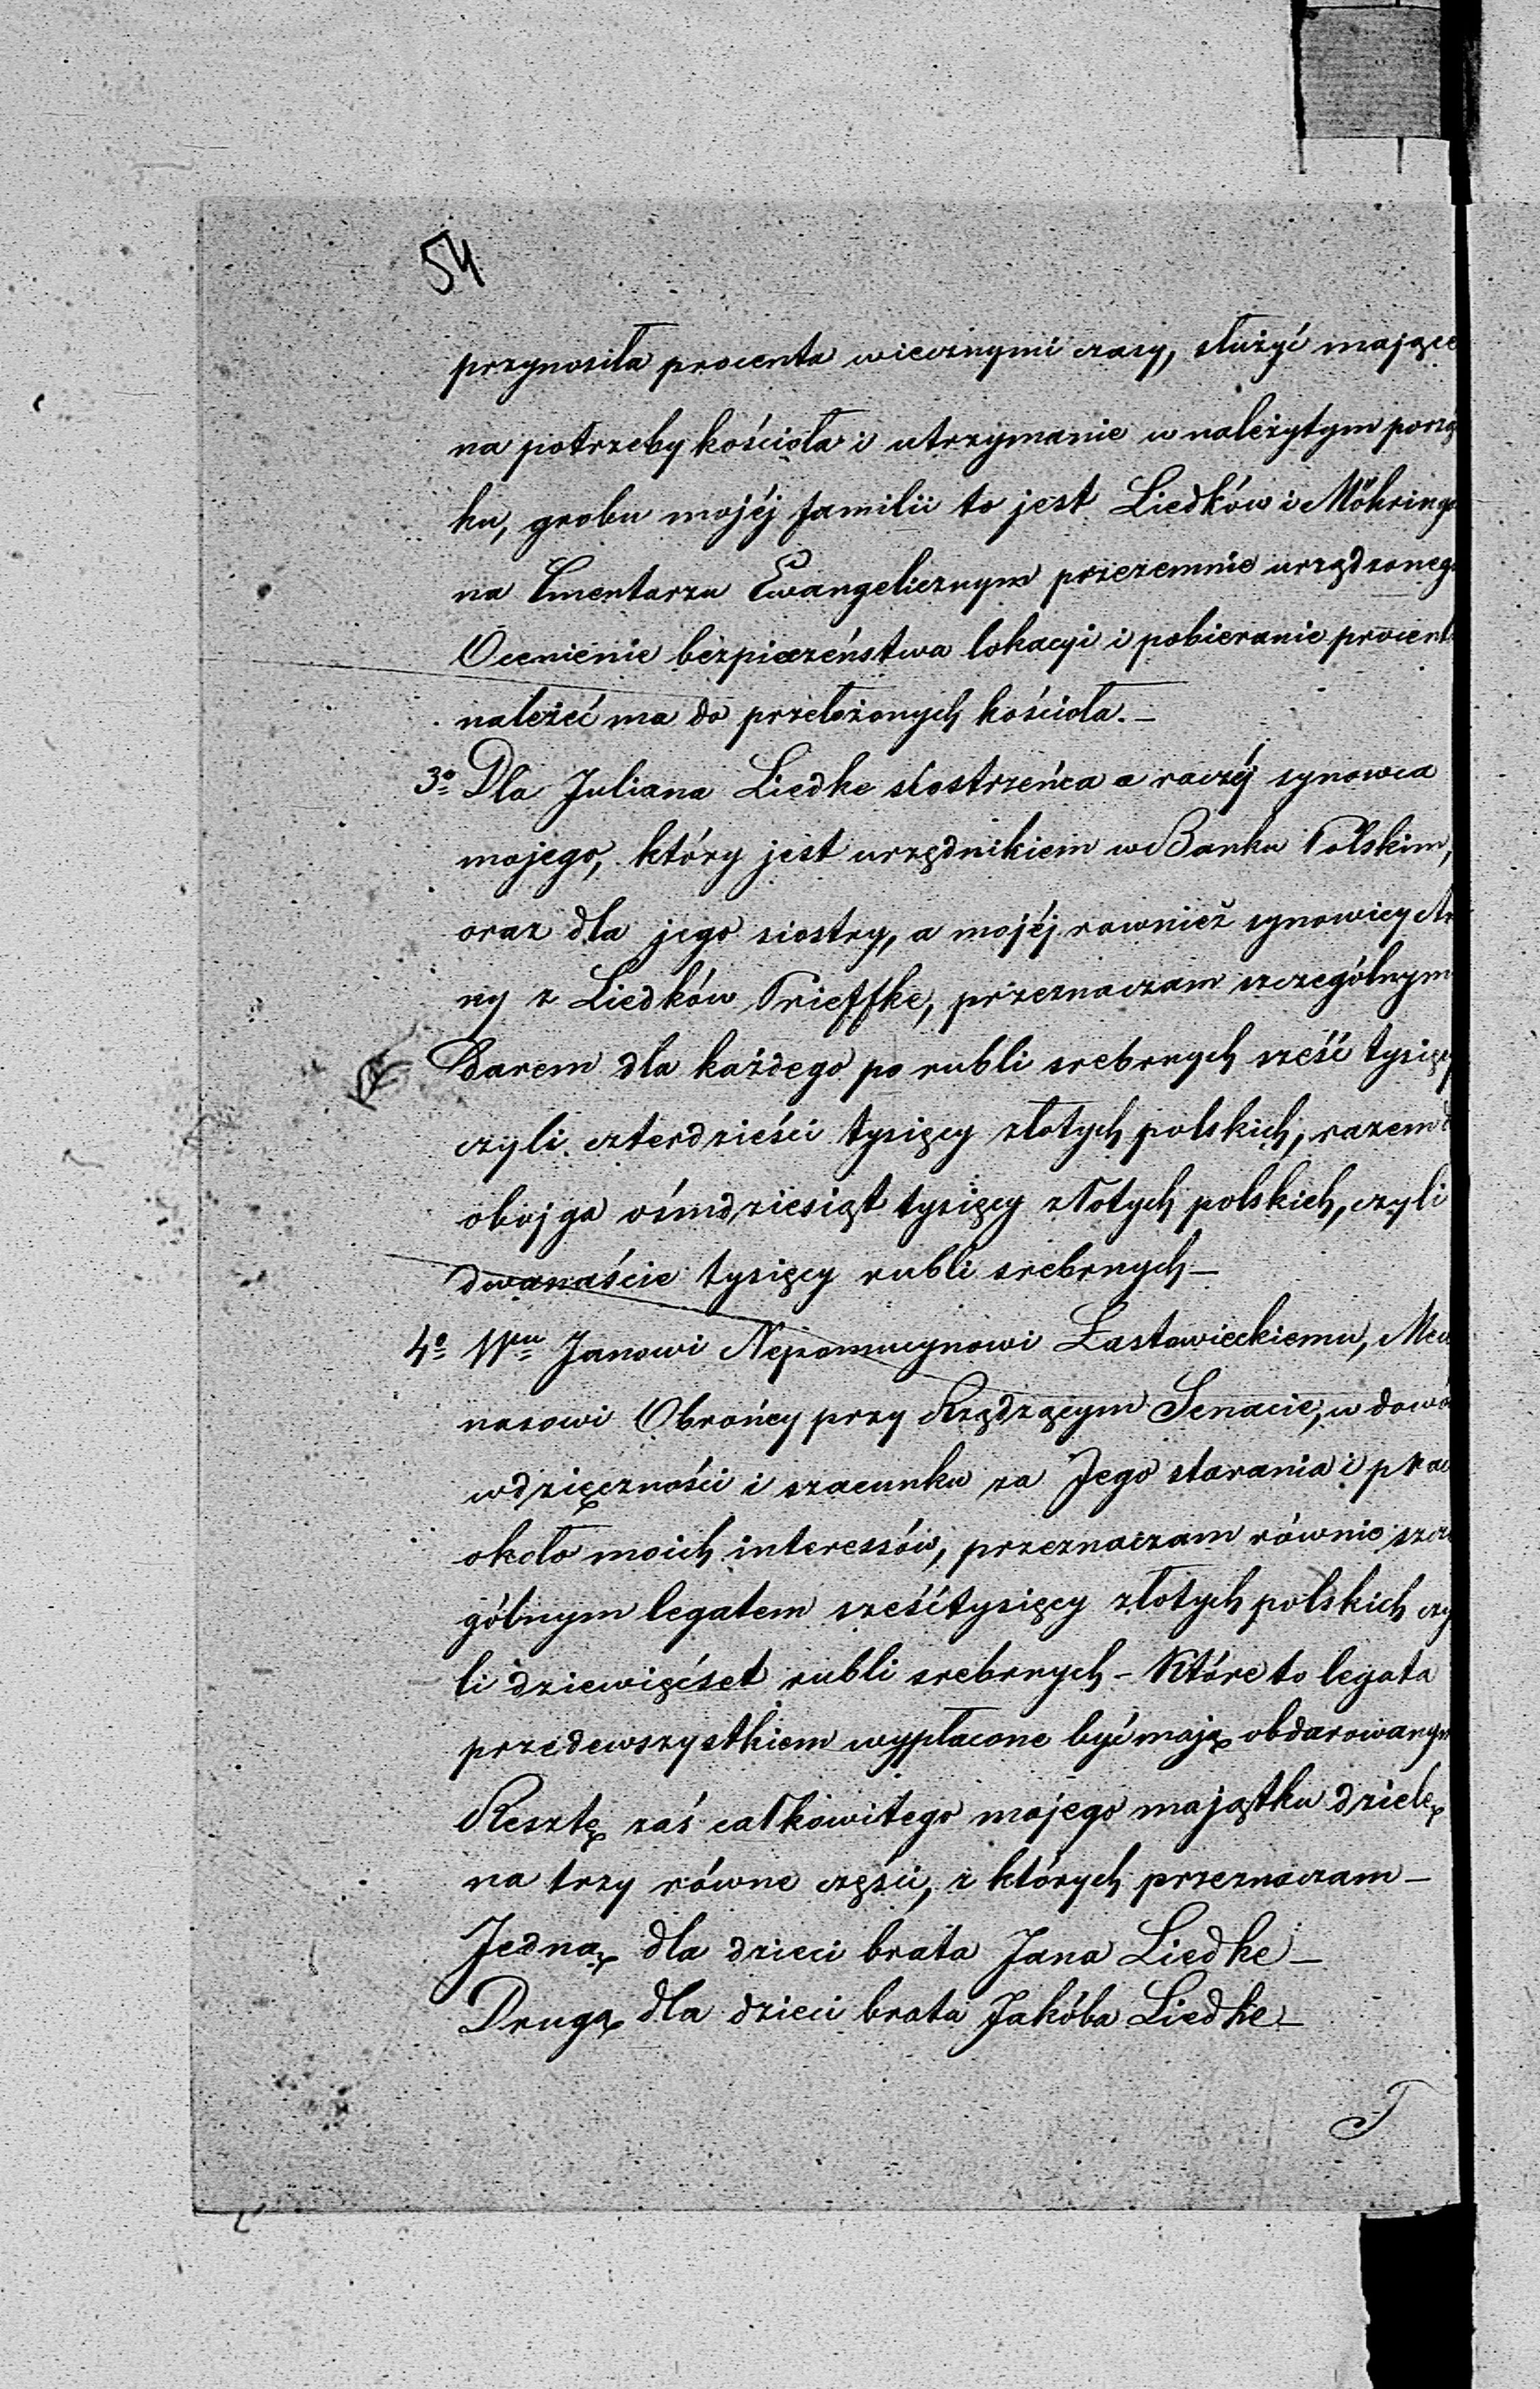 54
przynosiła procenta wiecznymi czasy, służyć mające
na potrzeby kościoła i utrzymanie w należytym porzą
ku, grobu mojéj familii to jest Liedków i Möhringó
na Cmentarzu Ewangelicznym przezemnie urządzoneg
Ocenienie bezpieczeństwa lokacyi i pobieranie procent
należeć ma do przełożonych kościoła. –
3o Dla Juliana Liedke siostrzeńca a raczéj synowca
mojego, który jest urzędnikiem w Banku Polskim,
oraz dla jego siostry, a mojéj rownież synowicy An
ny z Liedków Trieffke, przeznaczam szczególnym
Darem dla każdego po rubli srebrnych sześć tysięcy
czyli czterdzieści tysięcy złotych polskich, razem d
obojga ośmdziesiąt tysięcy złotych polskich, czyli
dwanaście tysięcy rubli srebrnych –
4o Wmu Janowi Nepomucynowi Łastowieckiemu, Mec
nasowi Obrońcy przy Rządzącym Senacie, w dowó
wdzięczności i szacunku za Jego starania i prac
około moich interessów, przeznaczam równie szcze
gólnym legatem sześć tysięcy złotych polskich czy
li dziewięćset rubli srebrnych – Które to legata
przedewszystkiem wypłacone być mają obdarowanym
Resztę zaś całkowitego mojego majątku dzielę
na trzy równe części, z których przeznaczam –
Jedną dla dzieci brata Jana Liedke –
Drugą dla dzieci brata Jakóba Liedke –
T